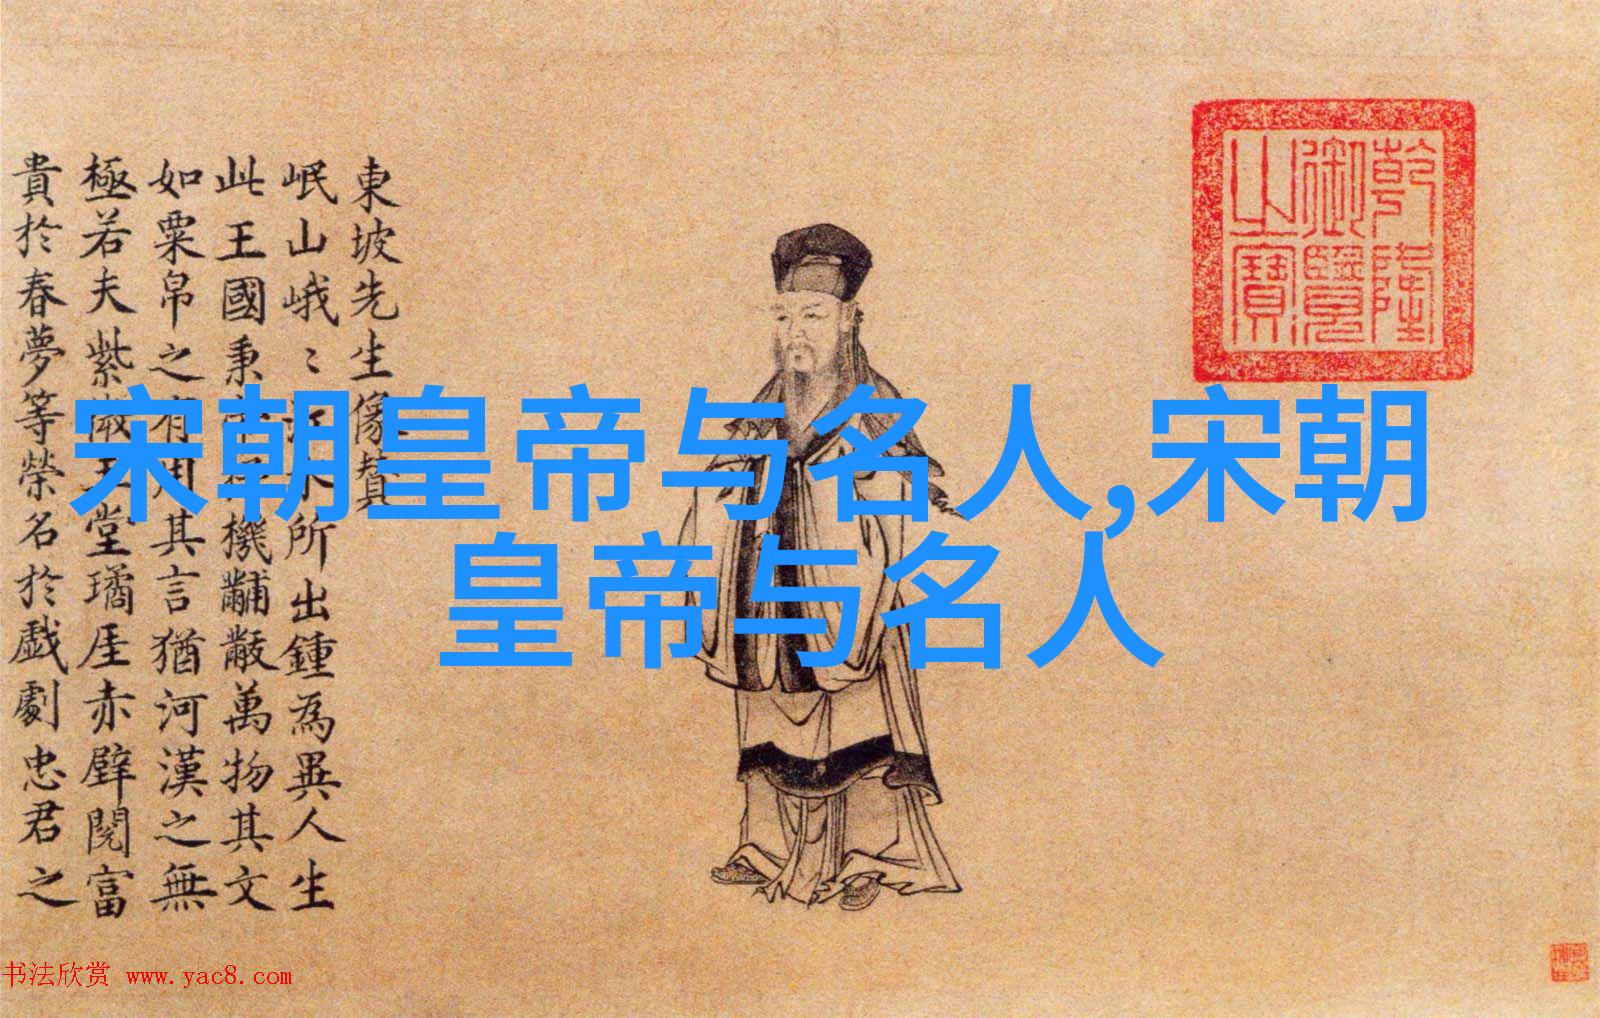 東坡先生像贊
岷山峨〻江水所出鍾為異人生
此王國秉帝杼機黼黻萬物其文
如粟帛之有用其言猶河漢之無
極若夫紫微玉堂璚厓赤壁閱富
貴於春夢等榮名於戲劇忠君之
乾隆
御覽
之寶
宋朝皇帝与名人,宋朝
皇帝与名人
书法欣赏 www.yac8.com